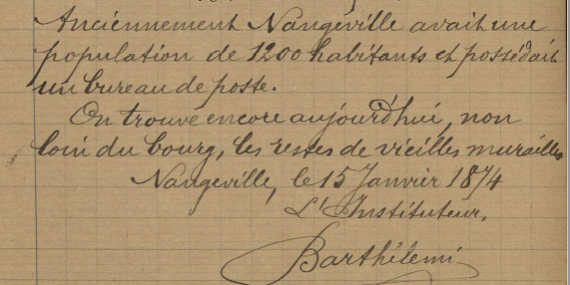 Anciennement Nangeville avait une
population de 1200 habitants et possédait
un bureau de poste.
On trouve encore aujourd'hui, non
loin du bourg, les restes de vieilles murailles
Nangeville, le 15 Janvier 1874
L'Instituteur,
Barthélemi